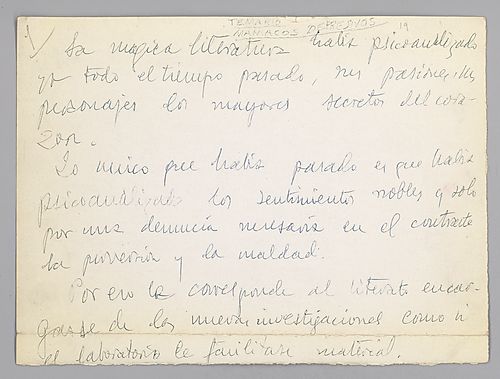 1/ TEMARIO 19
MANIACOS DEPRESIVOS
La magica literatura habia psicoanalizado
ya todo el tiempo pasado, sus pasiones, sus
personajes los mayores secretos del cora-
zon.
Lo unico que habia pasado es que habia
psicoanalizado los sentimientos nobles y solo
por una denuncia necesaria en el contraste
la perversion y la maldad.
Por eso le corresponde al literato encar-
garse de las nuevas investigaciones como si
el laboratorio le facilitase material.